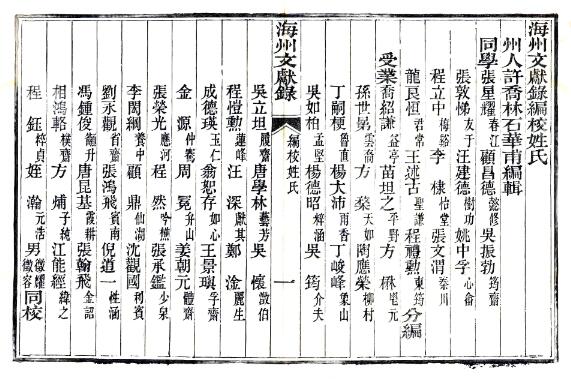 海州文獻錄編校姓氏
州人許喬林石華甫編輯
同學張星耀春江 顧昌德懿修 吳振勃筠齋
張敦悌友于 汪建德樹功 姚中孚心畬
程立中梅谿 李棣怡堂 張文渭秦川
龍艮恒君常 王述古聖謙 程禱勳東筠 分編
受業喬紹謙益亭 苗坦之平野 方 愷元
孫世第雲裔 方桑天如 閻應榮柳村
丁嗣梗魯直 楊大沛雨香 丁峻峰象山
吳如柏孟堅 楊德昭梓涵 吳筠介夫
海州文獻錄 編校姓氏 一
吳立坦履齋 唐學林藝芳 吳懷澂伯
程愷勲蓮峰 汪深獻其 鄭淦麗生
成德瑛玉仁 翁恕存如心 王景璵孚齋
金源仲騫 周冕升山 姜朝元體齋
張榮光應河 程然吟樵 張承鑑少泉
李閎綱養中 顧鼎仙湖 沈觀國利賓
劉永觀省齋 張鴻飛賓南 倪道一性涵
馮鍾俊鶴升 唐昆基霞耕 張翰飛金詔
相鴻輅樸齋 方 子純 江能經緯之
程鈺梓貞 姪瀚元浩 男徽耀徽容 同校